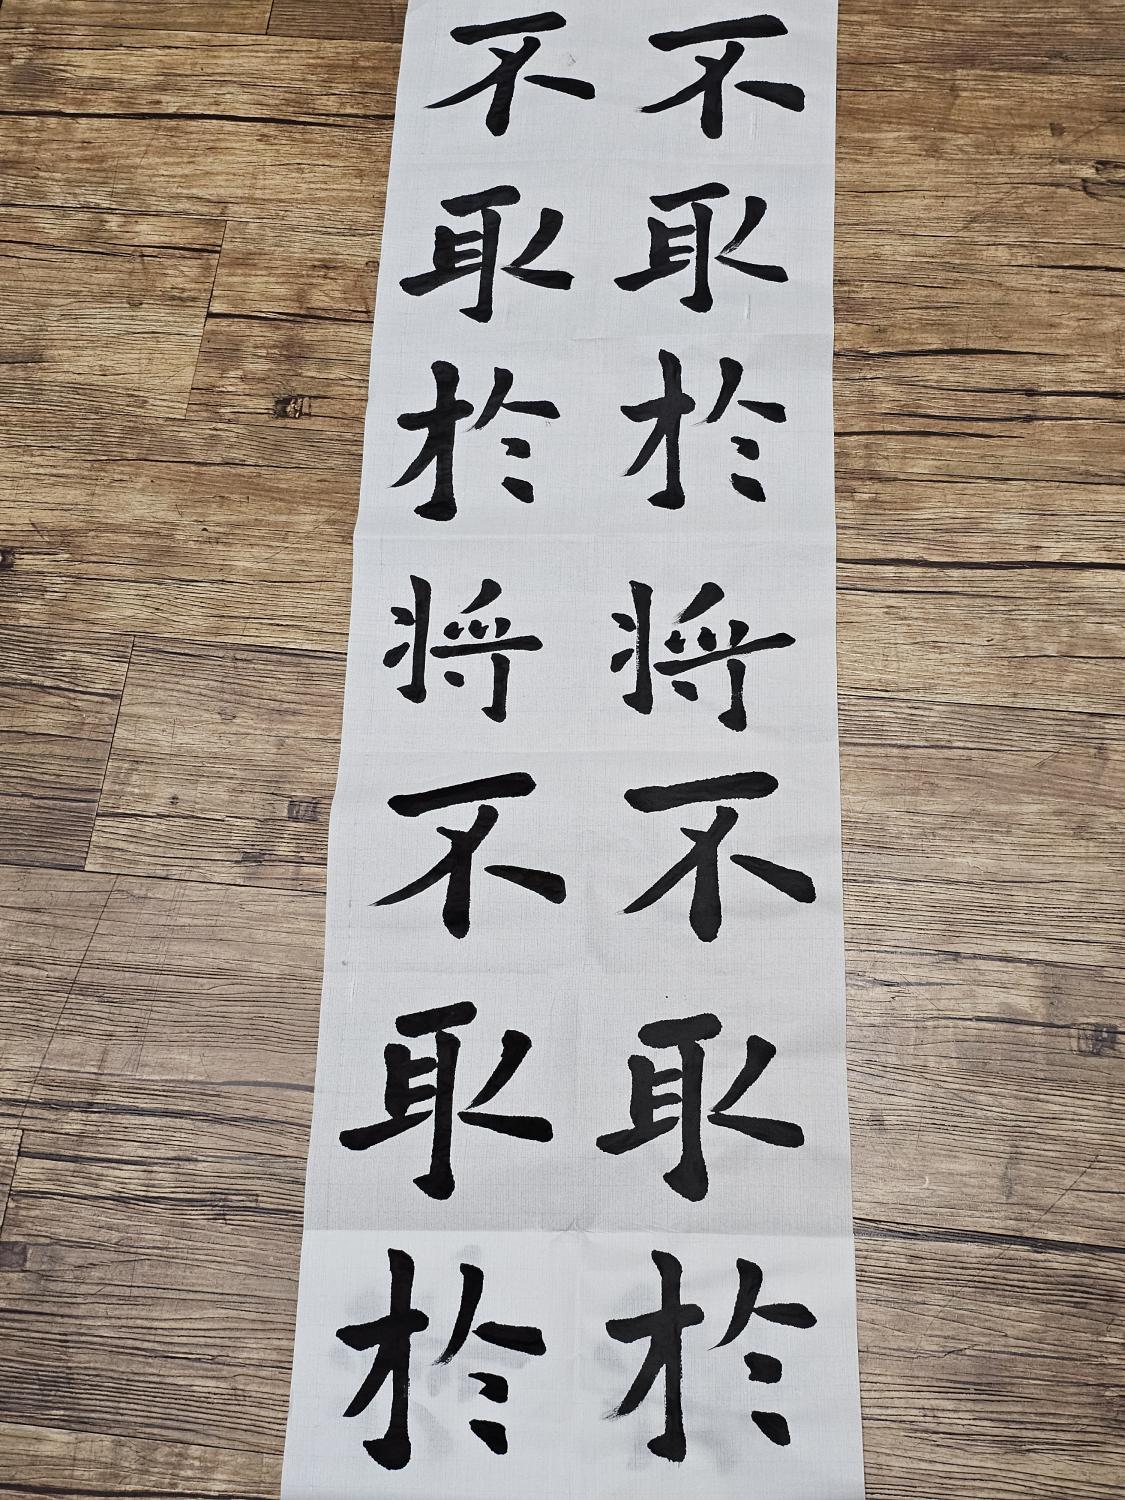 不取於将不取於
不取於将不取於